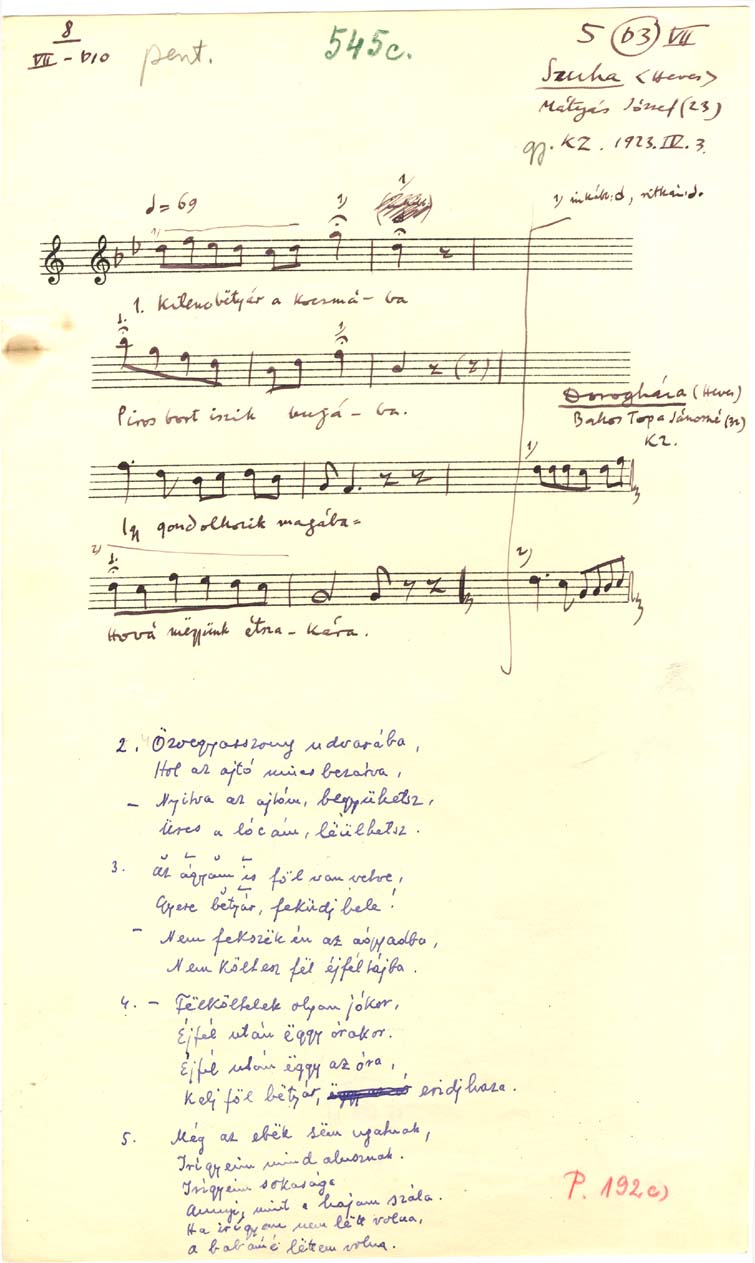 8
VII - b10
pent.
545c.
5 b3 VII
Szuha <Heves>
Mátyás József (23)
gy. KZ. 1923. IV. 3.
= 69
1) inkább: , ritkán: .
1. Kilencbëtyár a kocsmá - ba
Piros bort iszik bugá - ba.
Doroghára (Heves)
Bakos Topa Jánosné (32)
KZ.
Így gondolkozik magába =
Hová mëgyünk étsza - kára.
2. Özvegyasszony udvarába,
Hol az ajtó nincs bezárva,
- Nyitva az ajtóm, begyühetsz,
Üres a lócám, lëülhetsz.
3. Az ágyam is föl van vetve,
Gyere bëtyár, feküdj bele!
- Nem fekszëk én az ágyadba,
Nem költesz fël éjféltájba.
4. - Fëlköltelek olyan jókor,
Éjfél után ëggy órakor.
Éjfél után ëggy az óra,
Kelj föl bëtyár, eridj haza.
5. Még az ebëk sëm ugatnak,
Irigyeim mind alusznak.
Irigyeim sokasága
Annyi, mint a hajam szála.
Ha irigyem nem lëtt volna,
a babámé lëttem volna.
P. 192c)